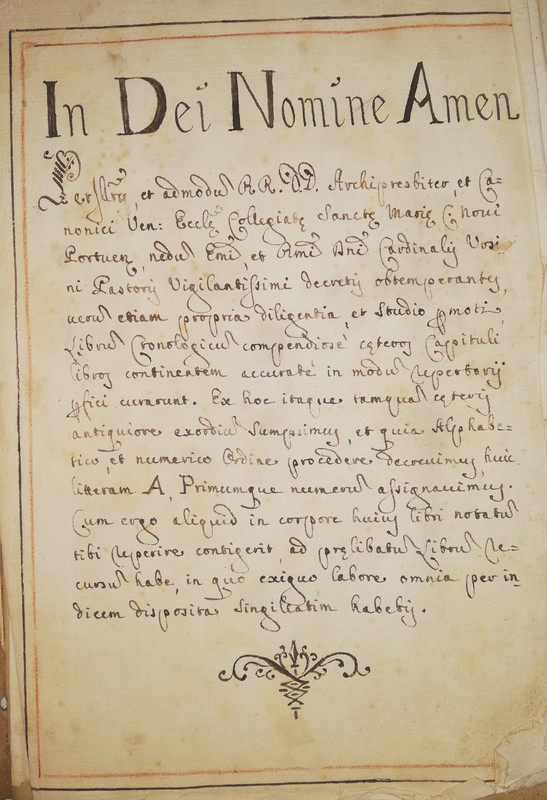 In Dei Nomine Amen
et admodũ RR. DD. Archipresbiter, et Ca=
nonici Ven: Ecclę Collegiatę Sanctę Marię C. Noui
Portuen, nedũ Emi, et Rmi Dni Cardinalis Vrsi=
ni Pastoris Vigilantissimi decretis obtemperantes,
ucrũ etiam propria diligentia, et studio ꝑmoti,
Librũ Cronologicũ compendiosè cęteros Cappituli
libros continentem accuratè in modũ repertorij
ꝑfici curarunt. Ex hoc itaque tamquã cęteris
antiquiore exordiũ sumpsimus, et quia Alphabe=
tico, et numerico Ordine procedere decreuimus, huic
litteram A, Primumque numerũ assignauimus.
Cum ergo aliquid in corpore huius libri notatũ
tibi reperire contigerit, ad pręlibatũ Librũ re=
cursũ habe, in quo exiguo labore omnia per in=
dicem disposita singillatim habebis.